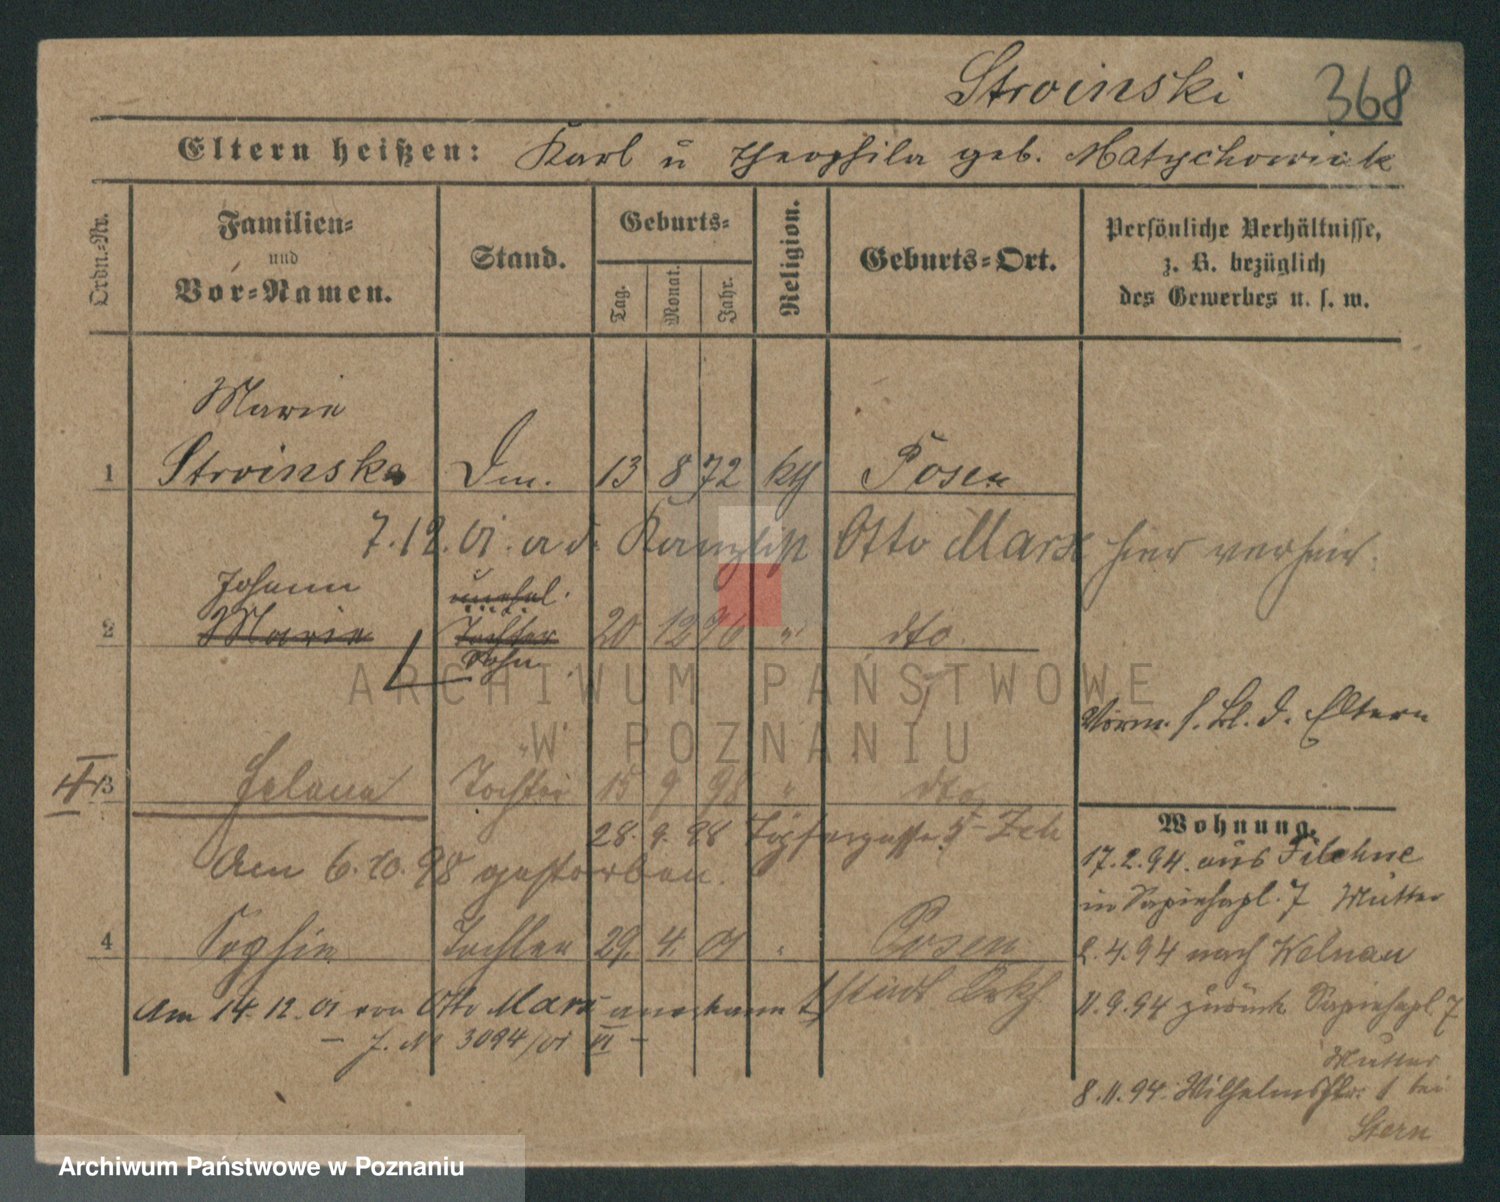 Stroinski 368
Eltern heißen: Karl u Theophila geb. Matychowiak
Ordn.-Nr.
Familien-
und
Vor-Namen.
Stand.
Geburts-
Tag. Monat. Jahr.
Religion.
Geburts-Ort.
Persönliche Verhältnisse,
z. B. bezüglich
des Gewerbes u. s. w.
Marie
1 Stroinska Dm. 13 8 72 kth Posen
7.12.01. a d. Kanzlist Otto Marx hier verheir.
Johann unehel.
2 Marie Tochter 20 12 96 " dto.
Sohn
Vorm. s. Bl. d. Eltern
3 Helene Tochter 15 9 98 " dto
28. 9. 98 Töpfergasse 5
Am 6.10.98 gestorben.
4 Sophie Tochter 29. 4. 01 " Posen
Am 14.12.01 von Otto Marx anerkannt
J. N 3094/01 VI
Wohnung.
17.2.94. aus Filehne
in Sapiehapl. 7 Mutter
2.4.94 nach Welnau
11.9.94 zurück Sapiehapl. 7
Mutter
8.11.94. Wilhelmstr. 1 bei
Stern
ARCHIWUM PAŃSTWOWE
W POZNANIU
Archiwum Państwowe w Poznaniu